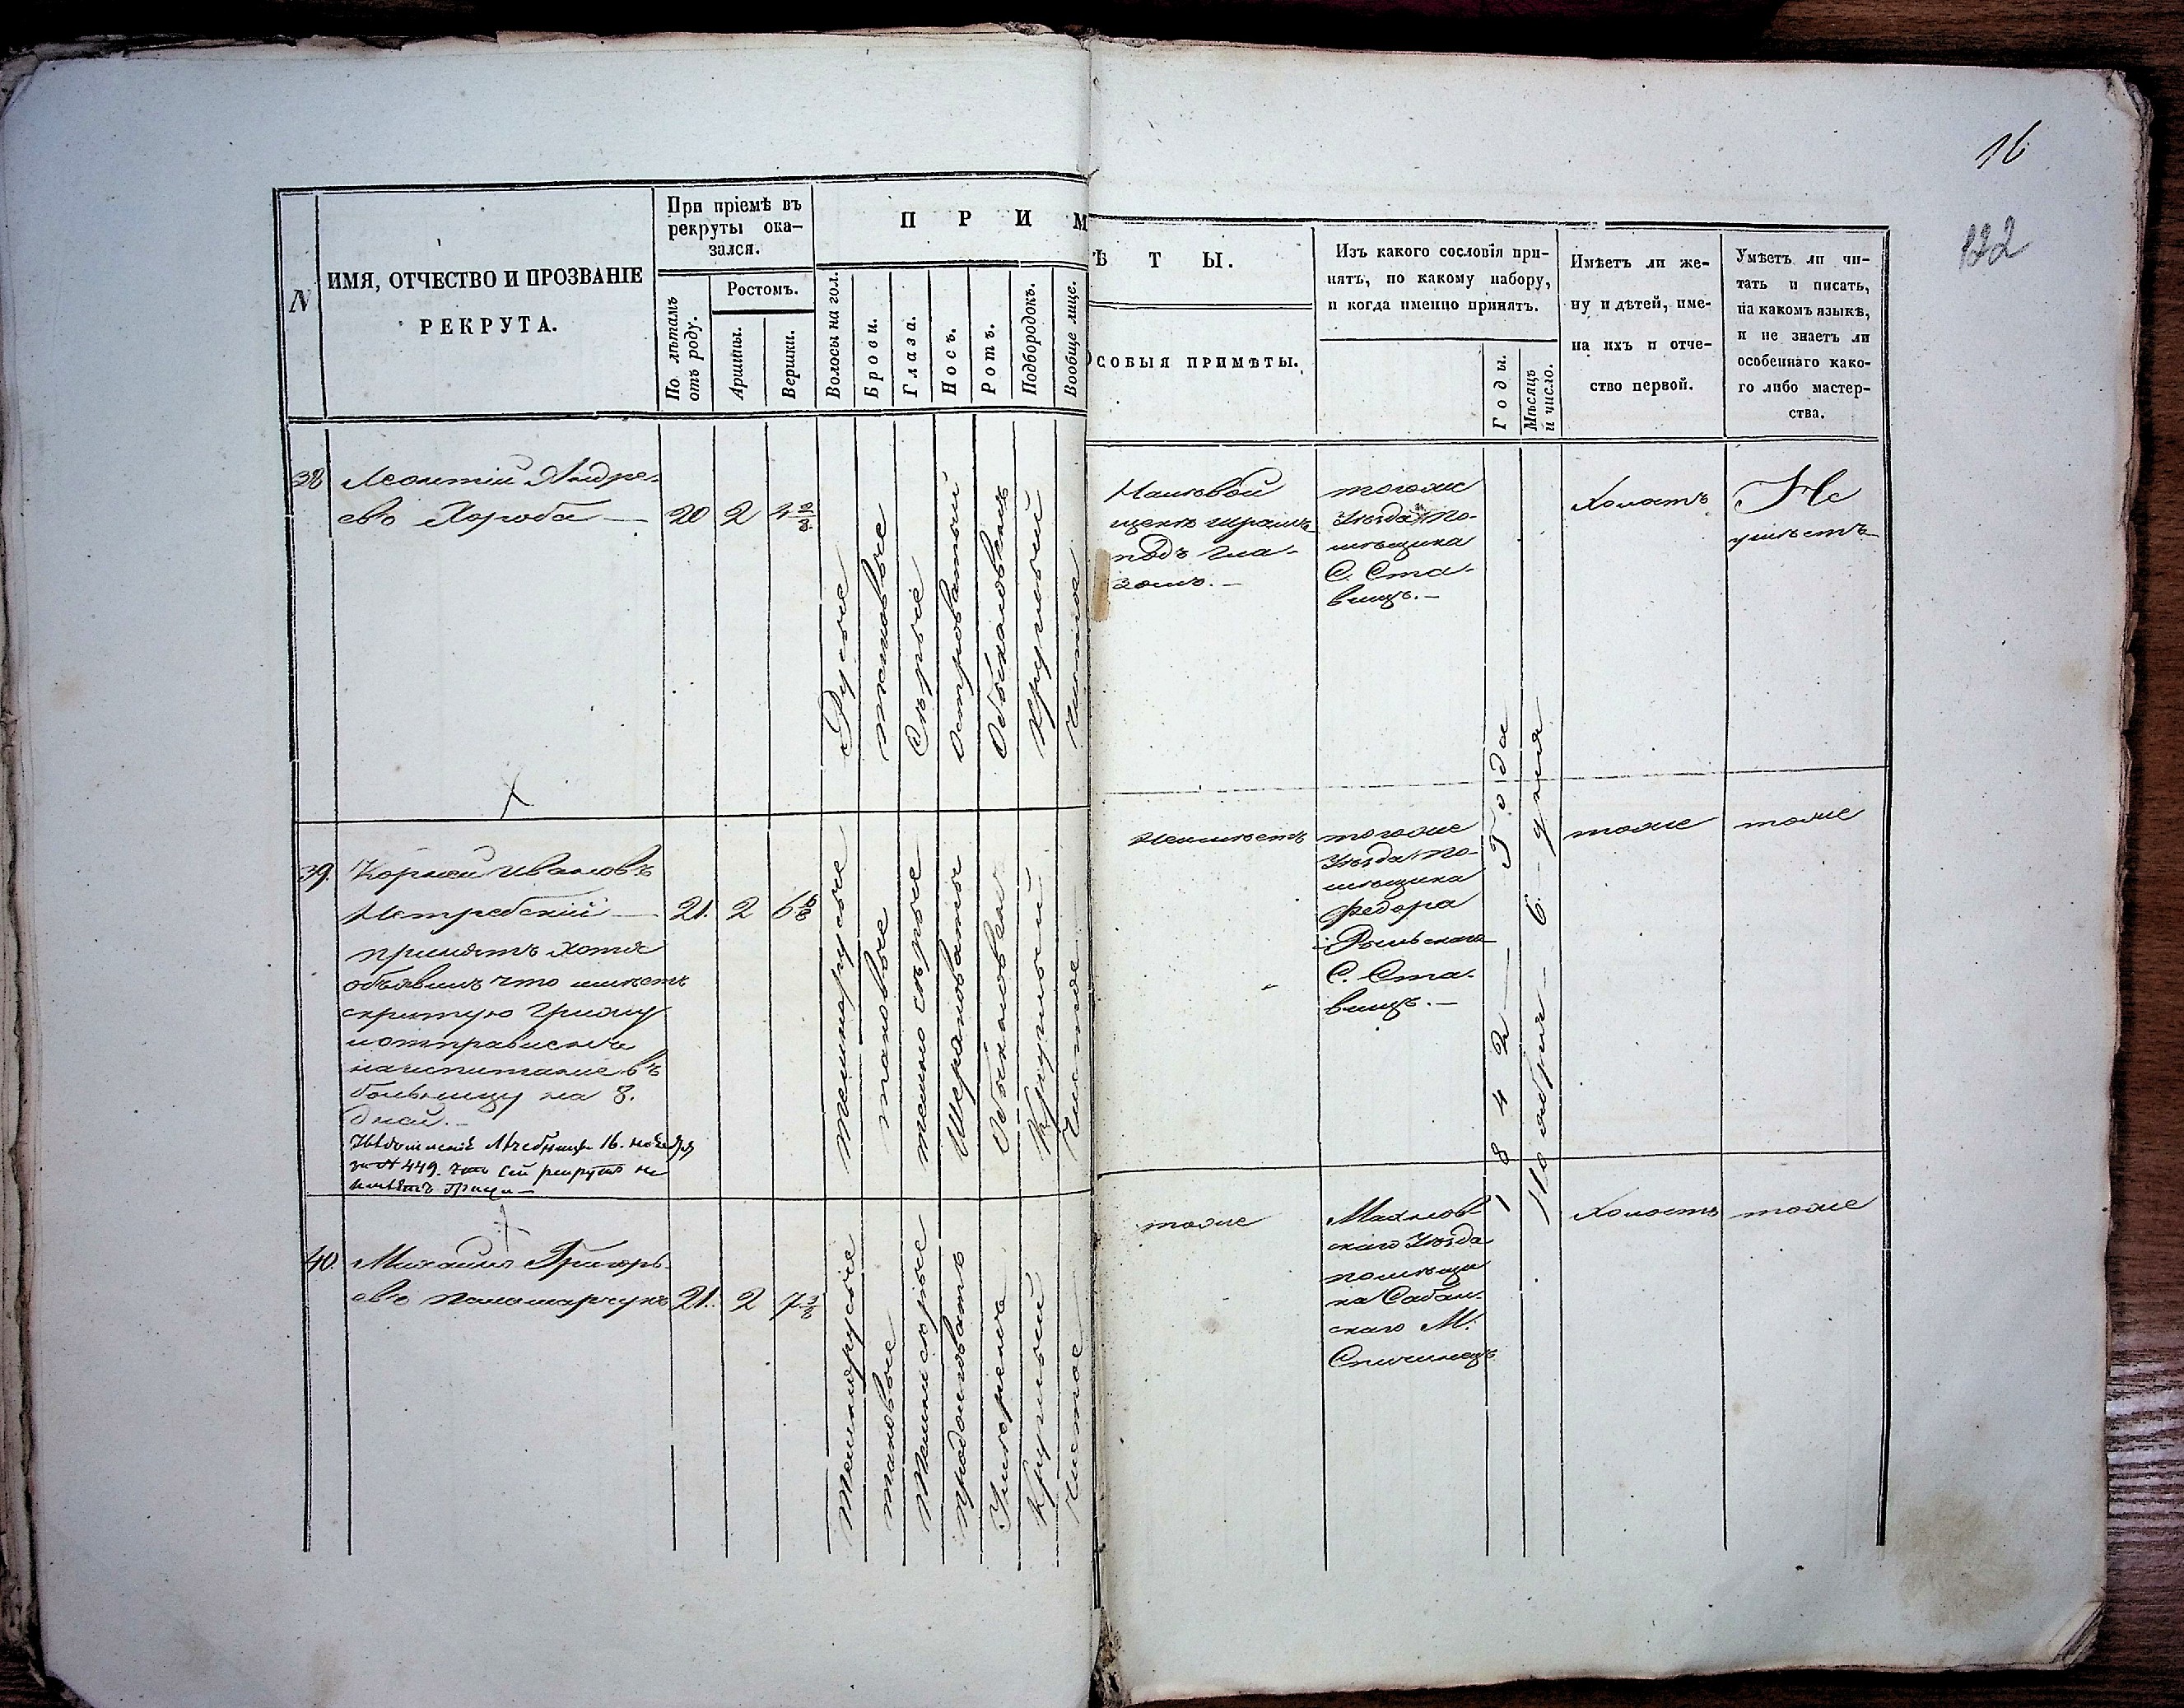 16
122
N
ИМЯ, ОТЧЕСТВО И ПРОЗВАНІЕ
РЕКРУТА.
При пріемѣ въ
рекруты ока-
зался.
По лѣтамъ
отъ роду.
Ростомъ.
Аршины.
Вершки.
П Р И М
Волосы на гол.
Брови.
Глаза.
Носъ.
Ротъ.
Подбородокъ.
Вообще лице.
Ѣ Т Ы.
ОСОБЫЯ ПРИМѢТЫ.
Изъ какого сословія при-
нятъ, по какому набору,
и когда именно принятъ.
Годы.
Мѣсяцъ
и число.
Имѣетъ ли же-
ну и дѣтей, име-
на ихъ и отче-
ство первой.
Умѣетъ ли чи-
тать и писать,
на какомъ языкѣ,
и не знаетъ ли
особеннаго како-
го либо мастер-
ства.
38
Леонтій Андре-
евъ Хороба
20
2
4
Русые
таковые
Сѣрые
Островатый
Обыкновенъ
Круглый
Чистое
щекѣ шрамъ
подъ гла-
зомъ.
тогоже
Уѣзда по-
мѣщика
С. Ста-
вищъ.
Холостъ
Не
умѣетъ
39.
Корней Ивановъ
принятъ хотя
объявилъ что имѣетъ
скрытую грыжу
и отправленъ
на испытаніе въ
больницу на 8.
дней.
16. ноября
за № 449. что сей рекрутъ не
имѣетъ грыжи
21.
2
6 6/8
темнорусые
таковые
темно сѣрые
Широковатый
Обыкновенъ
Круглый
Чистое
Неимѣетъ
тогоже
Уѣзда по-
мѣщика
Федора
С. Ста-
вищъ.
1842 Года
Ноября 6 дня
тоже
тоже
40.
Михаилъ Григорь-
евъ Паламарчукъ
21.
2
7
темнорусые
таковые
Темно сѣрые
продолговатъ
Умѣренъ
Круглый
Чистое
тоже
Махнов-
скаго Уѣзда
помѣщи
ка Собан-
скаго М.
Спичинецъ
Холостъ
тоже